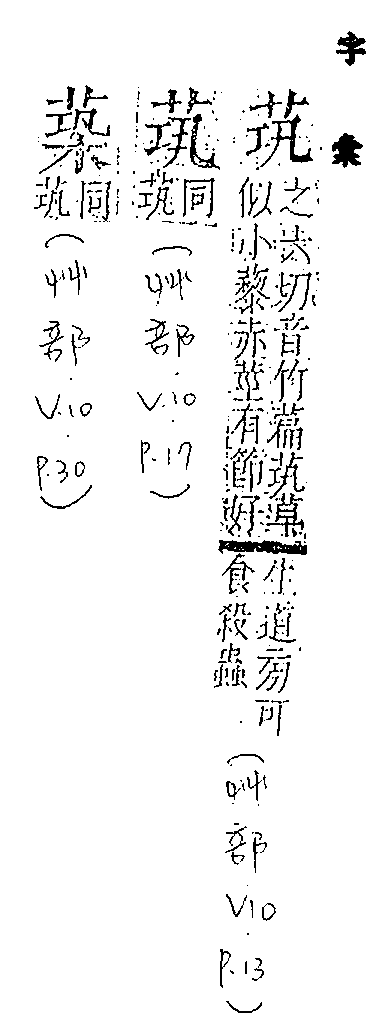 字彙
茿
之六切音竹萹茿草
似小藜赤莖有節好
生道旁可
食殺蟲
(艸部.V10.P.13)
同
茿
(艸部.V.10.P.17)
同
茿
(艸部.V.10.P.30)